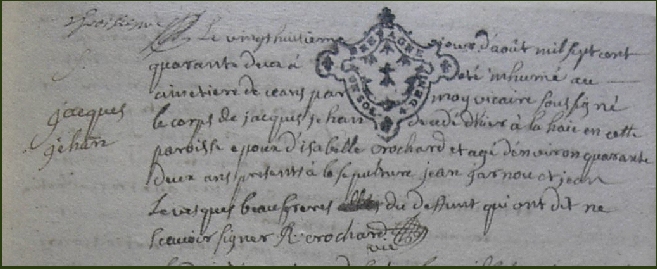 Le vingt huitieme jour d'août mil sept cent
quarante deux a été inhumé au
cimetiere de ceans par moy vicaire soussigné
jacques
jehan
le corps de jacques jehan decedé d'hier à la haie en cette
paroisse epoux d'isabelle crochard et agé d'environ quarante
deux ans presents à le sepulture jean garnou et jean
Levesques beaufreres du deffunt qui ont dit ne
scavoir signer R crochard
vic